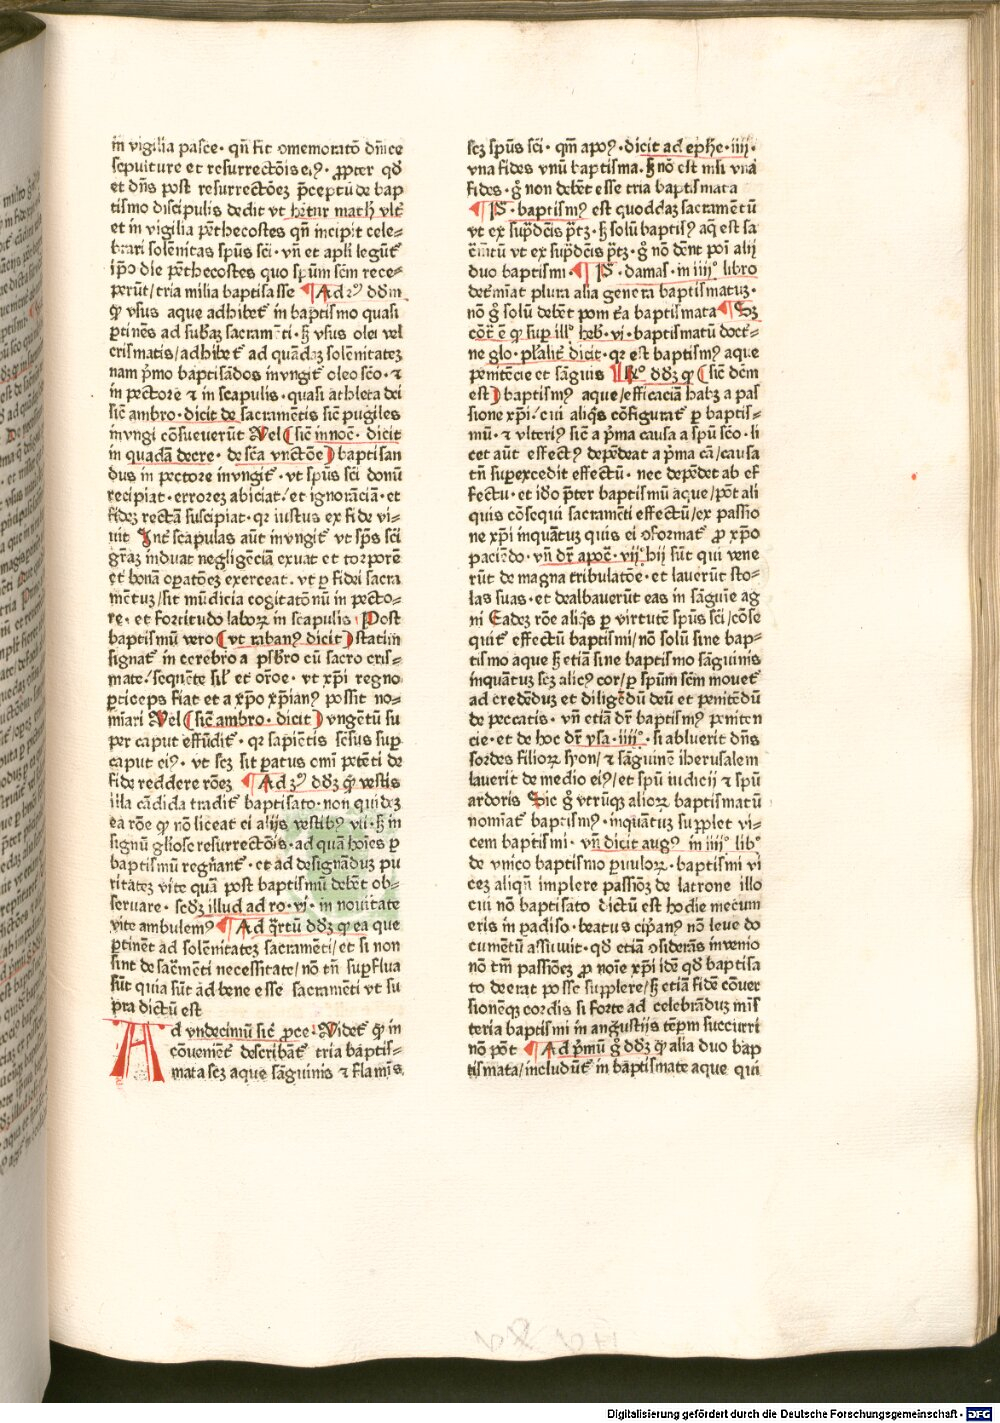 in vigilia pasce · qn̄ fit ɔmemoratō dn̄ice
sepulture et resurrectōis eiꝰ · ꝓpter qd̄
et dn̄s post resurrectōeꝫ p̄ceptū de bap
tismo discipulis dedit vt hētur math vlt̄
et in vigilia pēthecostes qn̄ incipit cele-
brari solēnitas spūs sc̄i · vn̄ et apl̄i legūt̄
ip̄o die pēthecostes quo spūm sc̄m rece-
perūt/tria milia baptisasse ¶ Ad 2ꝰ dōm
ꝙ vsus aque adhibet̄ in baptismo quasi
ꝑtinēs ad sub̄aꝫ sacramēti · ꝫ vsus olei vel
crismatis/adhibet̄ ad quādaꝫ solēnitateꝫ
nam p̄mo baptisādos inungit̄ oleo sc̄o · ⁊
in pectore ⁊ in scapulis · quasi athleta dei
sic̄ ambro · dicit de sacramētis sic̄ pugiles
inungi cōsueuerūt Vel (sic̄ innoc̄ · dicit
in quadā decre · de sc̄a vnctōe) baptisan
dus in pectore inungit̄ · vt spūs sc̄i donū
recipiat · erroreꝫ abiciat/et ignorāciā · et
fideꝫ rectā suscipiat · qr iustus ex fide vi-
uit Int̄ scapulas aūt inungit̄ vt sp̄s sc̄i
gr̄aꝫ induat negligēciā exuat et torporē
et bonā oꝑatōeꝫ exerceat · vt ꝑ fidei sacra
mētuꝫ/sit mūdicia cogitatōnū in pecto-
re · et fortitudo laboꝝ in scapulis Post
baptismū vero (vt rabanꝰ dicit) statim
signat̄ in cerebro a p̄sbr̄o cū sacro cris-
mate/sequēte sil̄ et or̄oe · vt xp̄i regno
ꝑticeps fiat et a xp̄o xp̄ianꝰ possit no-
minari Vel (sic̄ ambro · dicit) vngētū su
per caput effūdit̄ · qr sapiētis sēsus suꝑ
caput eiꝰ · vt seꝫ sit ꝑatus om̄i petēti de
fide reddere rōeꝫ ¶ Ad 3ꝰ dōꝫ ꝙ vestis
illa cādida tradit̄ baptisato · non quideꝫ
ea rōe ꝙ nō liceat ei alijs vestibꝰ vti · ꝫ in
signū gl̄iose resurrectōis · ad quā hoīes ꝑ
baptismū regn̄ant̄ · et ad designādūꝫ pu
ritateꝫ vite quā post baptismū debēt ob-
seruare · secd̄ꝫ illud ad ro · vi · in nouitate
vite ambulemꝰ ¶ Ad q̄rtū dōꝫ ꝙ ea que
ꝑtinēt ad solēnitateꝫ sacramēti/et si non
sint de sac̄mēti necessitate/nō tn̄ suꝑflua
sūt quia sūt ad bene esse sacramēti vt su
pra dictū est
Ad vndecimū sic̄ ꝓce2 · Videt̄ ꝙ in
cōueniēt̄ describāt̄ tria baptis-
mata seꝫ aque sāguinis ⁊ flamis
seꝫ spūs sc̄i · qm̄ apoꝰ · dicit ad ephe · iiij ·
vna fides vnū baptisma · ꝫ nō est nisi vna
fides · g̊ non debēt esse tria baptismata
¶ P̄ · baptismꝰ est quoddaꝫ sacramētū
vt ex sup̄dc̄is p̄tꝫ · ꝫ solū baptismꝰ aq̄ est sa
c̄mētū vt ex sup̄dc̄is p̄tꝫ · g̊ nō dēnt poī alij
duo baptismi · ¶ P̄ · damas · in iiij° libro
det̄miat plura alia genera baptismatuꝫ ·
nō g̊ solū debēt poni tr̄a baptismata ¶ Sꝫ
cōt̄ ē ꝙ suꝑ ill° heb̄ · vi · baptismatū doct̄-
ne glo · pl̄alit̄ dicit · qr est baptismꝰ aque
penitēcie et sāguis ¶ R° dōꝫ ꝙ (sic̄ dc̄m
est) baptismꝰ aque/efficaciā habꝫ a pas
sione xp̄i/cui aliq̄s cōfigurat̄ ꝑ baptis-
mū · ⁊ vlteriꝰ sic̄ a p̄ma causa a spū sc̄o · li
cet aūt effectꝰ depēdeat a p̄ma cā/causa
tn̄ suꝑexcedit effectū · nec depēdet ab ef
fectu · et iō p̄ter baptismū aque/pōt ali
quis cōsequi sacramēti effectū/ex passio
ne xp̄i inquātuꝫ quis ei ɔformat̄ ꝓ xp̄o
paciēdo · vn̄ dr̄ apoc̄ · vij° hij sūt qui vene
rūt de magna tribulatōe · et lauerūt sto-
las suas · et dealbauerūt eas in sāguīe ag
ni Eadeꝫ rōe aliq̄s ꝑ virtutē spūs sc̄i/cōse
quit̄ effectū baptismi/nō solū sine bap-
tismo aque ꝫ etiā sine baptismo sāguinis
inquātuꝫ seꝫ alicꝰ cor/ꝑ spūm sc̄m mouet̄
ad credēdūꝫ et diligēdū deū et penitēdū
de peccatis · vn̄ etiā dr̄ baptismꝰ peniten
cie · et de hoc dr̄ ysa · iiij° · si abluerit dn̄s
sordes filioꝝ syon/⁊ sāguinē iherusalem
lauerit de medio eiꝰ/et spū iudicij ⁊ spū
ardoris Sic g̊ vtrūqꝫ alioꝝ baptismatū
nomiat̄ baptismꝰ · inquātuꝫ supplet vi-
cem baptismi · vn̄ dicit augꝰ in iiij° lib°
de vnico baptismo ꝑuuloꝝ · baptismi vi
ceꝫ aliqn̄ implere passiōeꝫ de latrone illo
cui nō baptisato dictū est hodie mecum
eris in ꝑadiso · beatus cip̄anꝰ nō leue do
cumētū assūuit · qd̄ etiā ɔsiderās inuenio
nō tm̄ passiōeꝫ ꝓ noīe xp̄i idē qd̄ baptisa
to deerat posse supplere/ꝫ etiā fidē cōuer
sionēqꝫ cordis si forte ad celebrādūꝫ mis̄
teria baptismi in angustijs tēpm succurri
nō pōt ¶ Ad p̄mū g̊ dōꝫ ꝙ alia duo bap
tismata/includūt̄ in baptismate aque qui
Digitalisierung gefördert durch die Deutsche Forschungsgemeinschaft - DFG